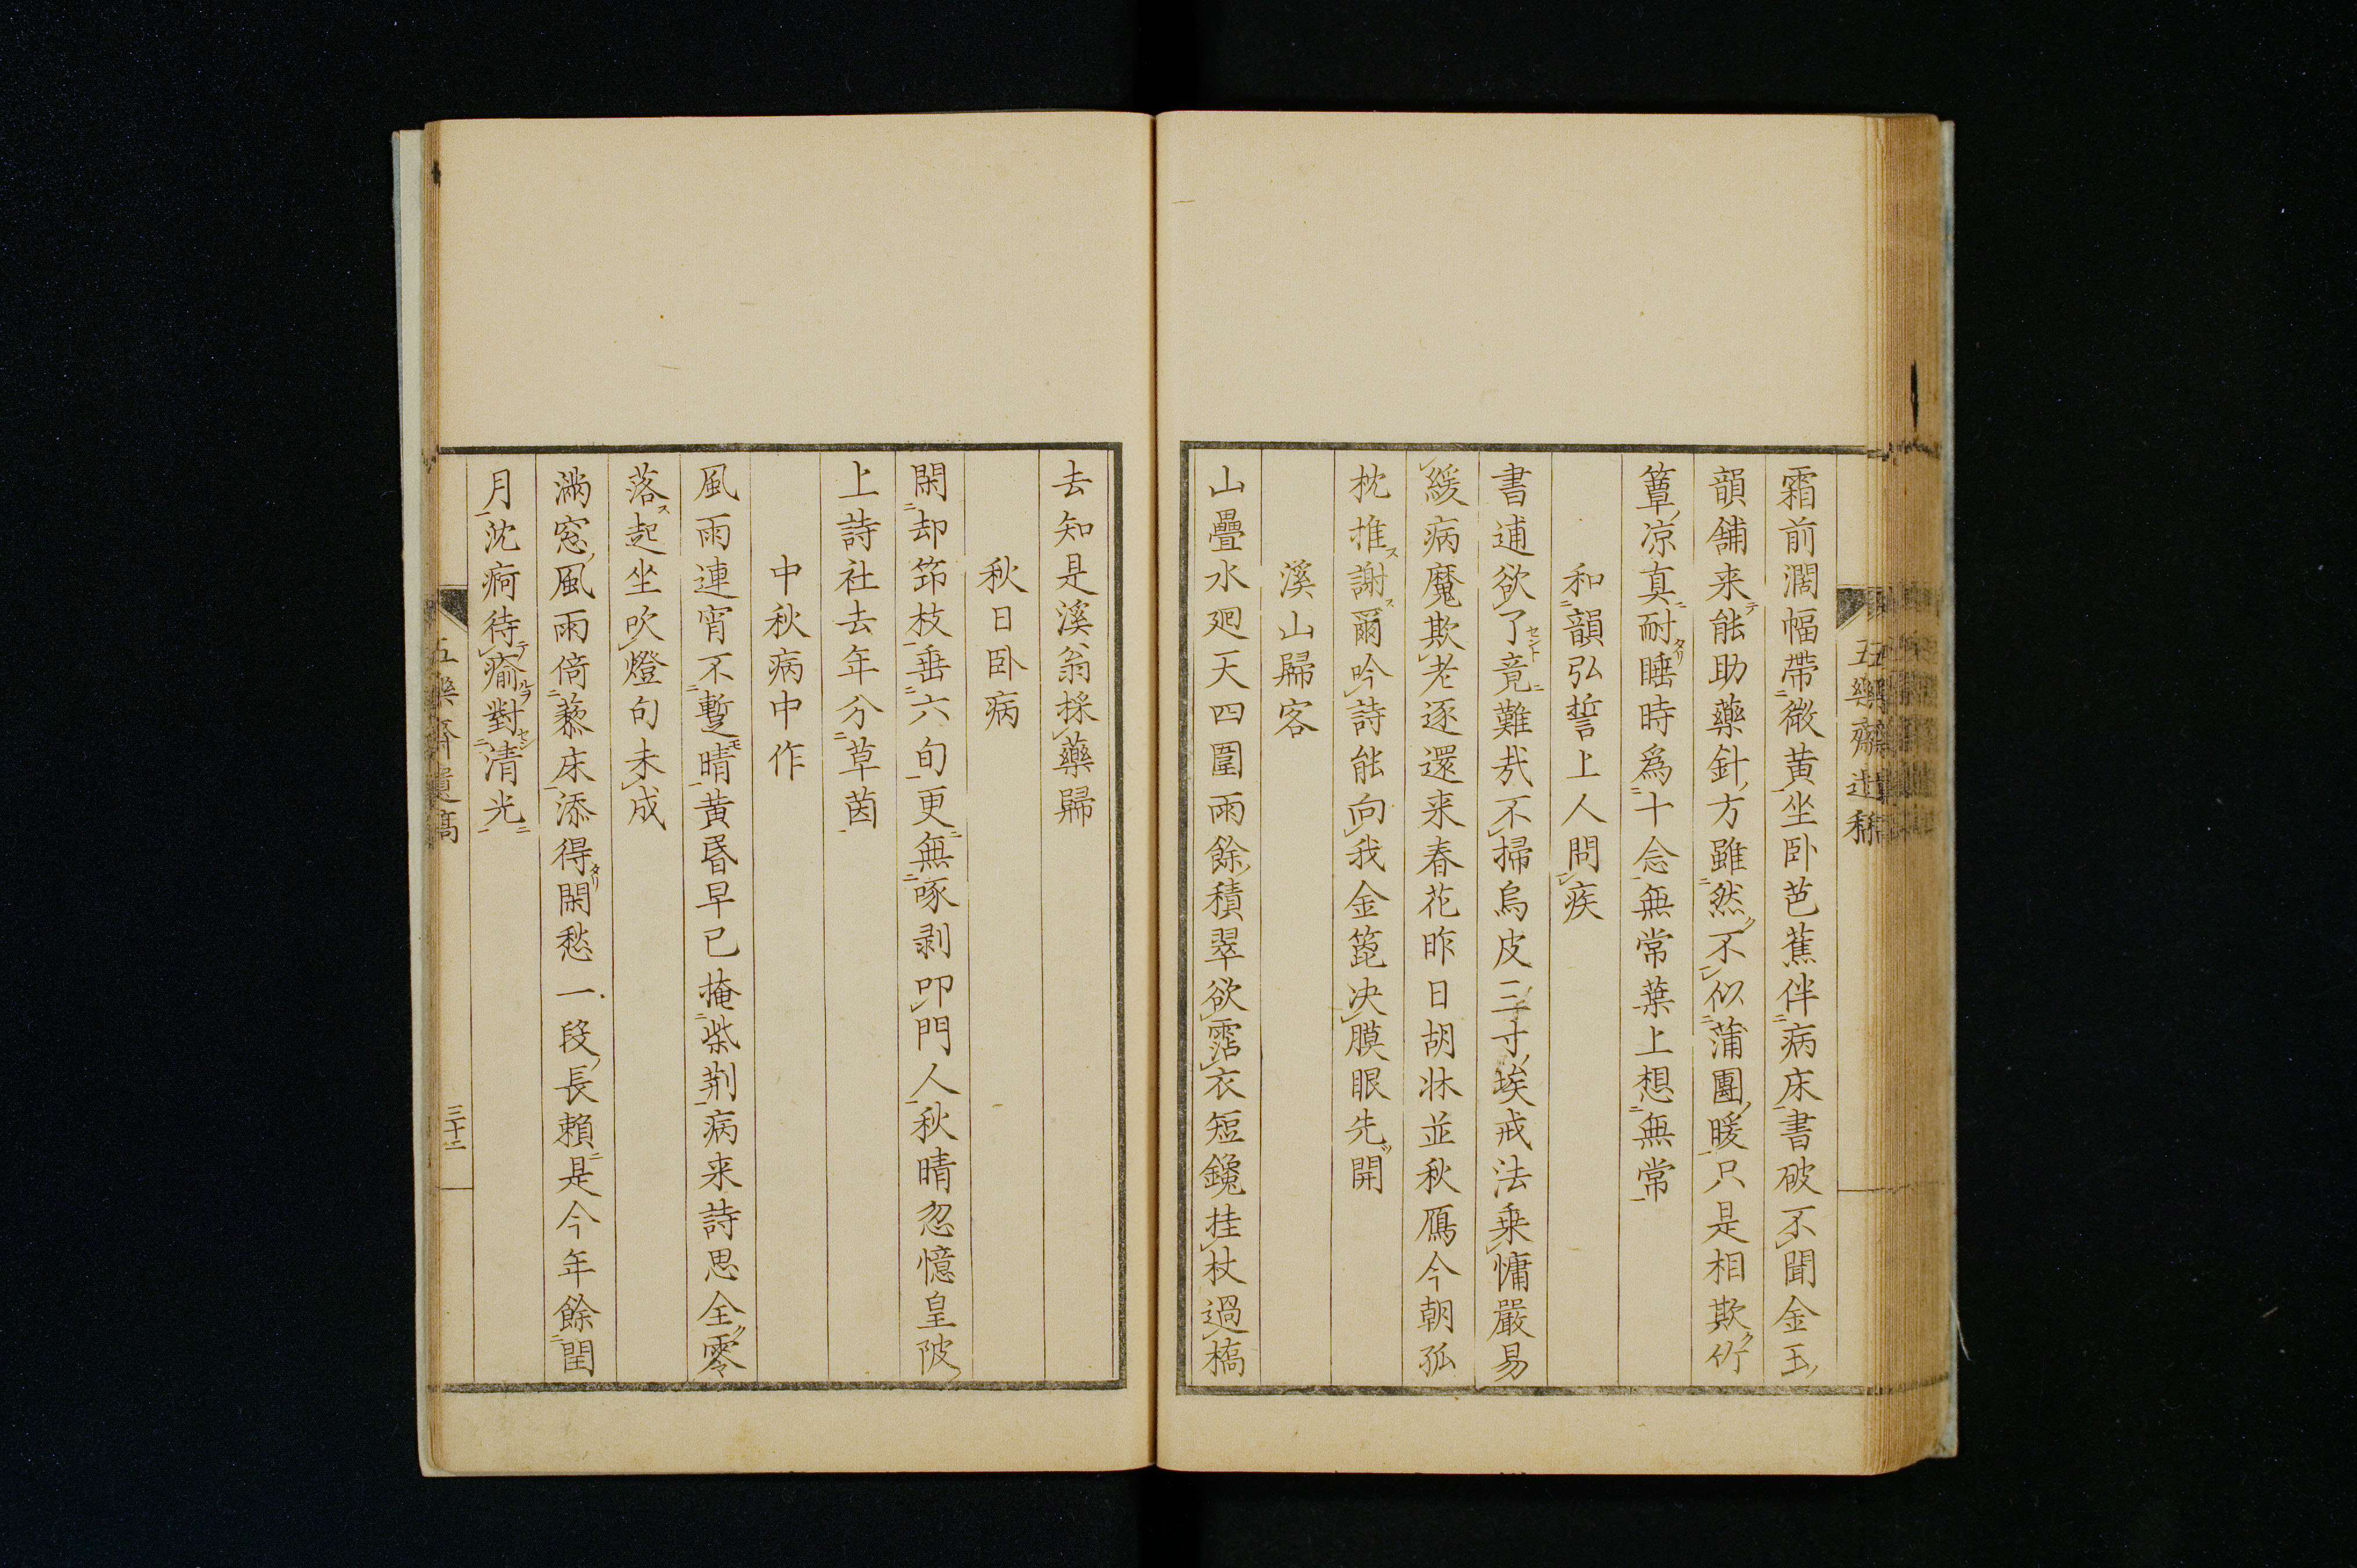 五樂齋遺稿
霜前濶幅帶微黄坐卧芭蕉伴病床書破不聞金玉
韻舗来能助藥針方雖然不似蒲團暖只是相欺竹
簟凉真耐睡時爲十念無常葉上想無常
和韻弘誓上人問疾
書逋欲了竟難哉不掃烏皮三寸埃戒法乗慵嚴易
緩病魔欺老逐還来春花昨日胡牀並秋鴈今朝孤
枕推謝爾吟詩能向我金篦决膜眼先開
溪山歸客
山疊水廻天四圍雨餘積翠欲霑衣短鑱挂杖過橋
去知是溪翁採藥歸
秋日卧病
閑却笻枝垂六旬更無啄剥叩門人秋晴忽憶皇陂
上詩社去年分草茵
中秋病中作
風雨連宵不暫晴黄昏早已掩柴荆病来詩思全零
落起坐吹燈句未成
滿窓風雨倚藜床添得閑愁一段長賴是今年餘閏
月沈痾待瘉對清光
五樂齋遺稿
三十二